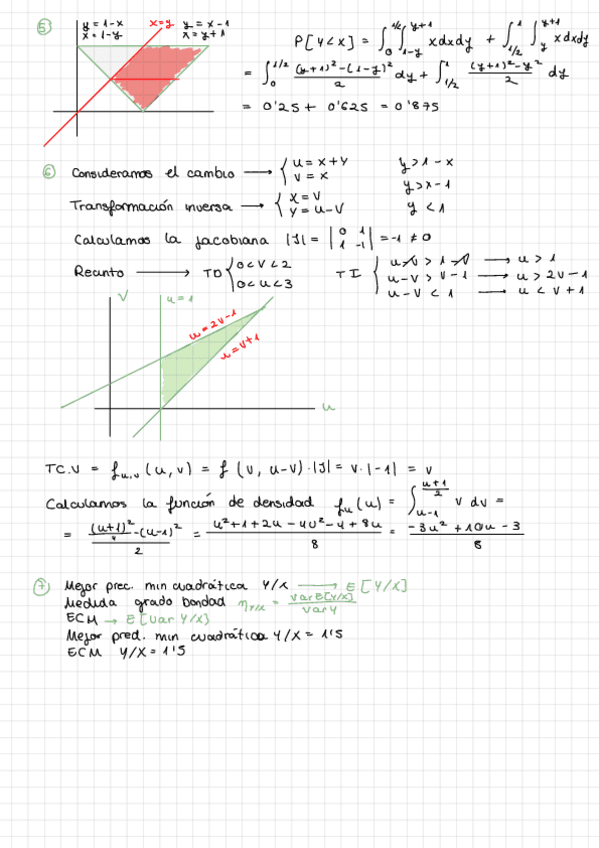 5) y = 1-x  x=y  y = x-1
x = 1-y  x = y+1
P[Y<X] = ∫₀^{1/2} ∫_{1-y}^{y+1} x dx dy + ∫_{1/2}^{1} ∫_y^{y+1} x dx dy
= ∫₀^{1/2} ((y+1)²-(1-y)²)/2 dy + ∫_{1/2}^{1} ((y+1)²-y²)/2 dy
= 0'25 + 0'625 = 0'875
6) Consideramos el cambio → { u = x+y  y > 1-x
v = x  y > x-1
Transformación inversa → { x = v  y < 1
y = u-v
Calculamos la jacobiana |J| = |0 1; 1 -1| = -1 ≠ 0
Recinto → TD { 0<v<2  TI { u-v > 1-v → u > 1
0<u<3  u-v > v-1 → u > 2v-1
u-v < 1 → u < v+1
v  u=1
u=2v-1
u=v+1
u
T.C.V = f_{u,v}(u,v) = f(v, u-v)·|J| = v·|-1| = v
Calculamos la función de densidad f_u(u) = ∫_{u-1}^{(u+1)/2} v dv =
= ((u+1)²/4 - (u-1)²)/2 = (u²+1+2u-4u²-4+8u)/8 = (-3u²+10u-3)/8
7) Mejor prec. min cuadrática Y/X → E[Y/X]
Medida grado bondad η_{Y/X} = Var E[Y/X] / Var Y
ECM → E[Var Y/X]
Mejor pred. min cuadrática Y/X = 1'5
ECM Y/X = 1'5